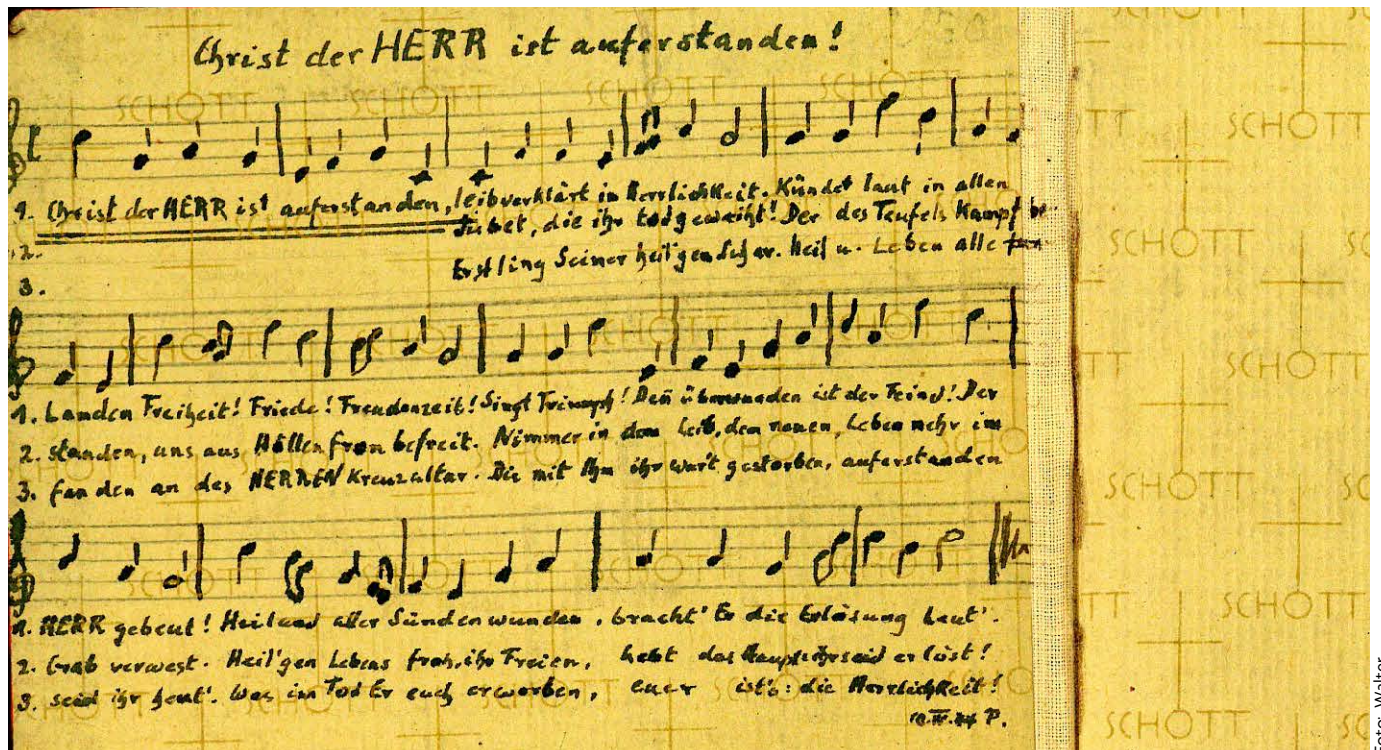 Christ der HERR ist auferstanden!
1. Christ der HERR ist auferstanden, leibverklärt in Herrlichkeit. Kündet laut in allen
2. Jubet, die ihr todgeweiht! Der des Teufels Kampf be-
3. Erstling Seiner heil'gen Schar. Heil u. Leben alle
1. Landen Freiheit! Friede! Freudenzeit! Singt Triumph! Deñ überwunden ist der Feind! Der
2. standen, uns aus Höllenfron befreit. Nimmer in dem Leib, dem neuen, Leben mehr im
3. fanden an des HERREN Kreuzaltar. Die mit Ihm ihr war't gestorben, auferstanden
1. HERR gebeut! Heiland aller Sündenwunden, bracht' Er die Erlösung heut'.
2. Grab verwest. Heil'gen Lebens froh, ihr Freien, hebt das Haupt: ihr seid erlöst!
3. seid ihr heut'. Was im Tod Er euch erworben, euer ist's: die Herrlichkeit!
IV.44 P.
SCHOTT
Foto: Walter